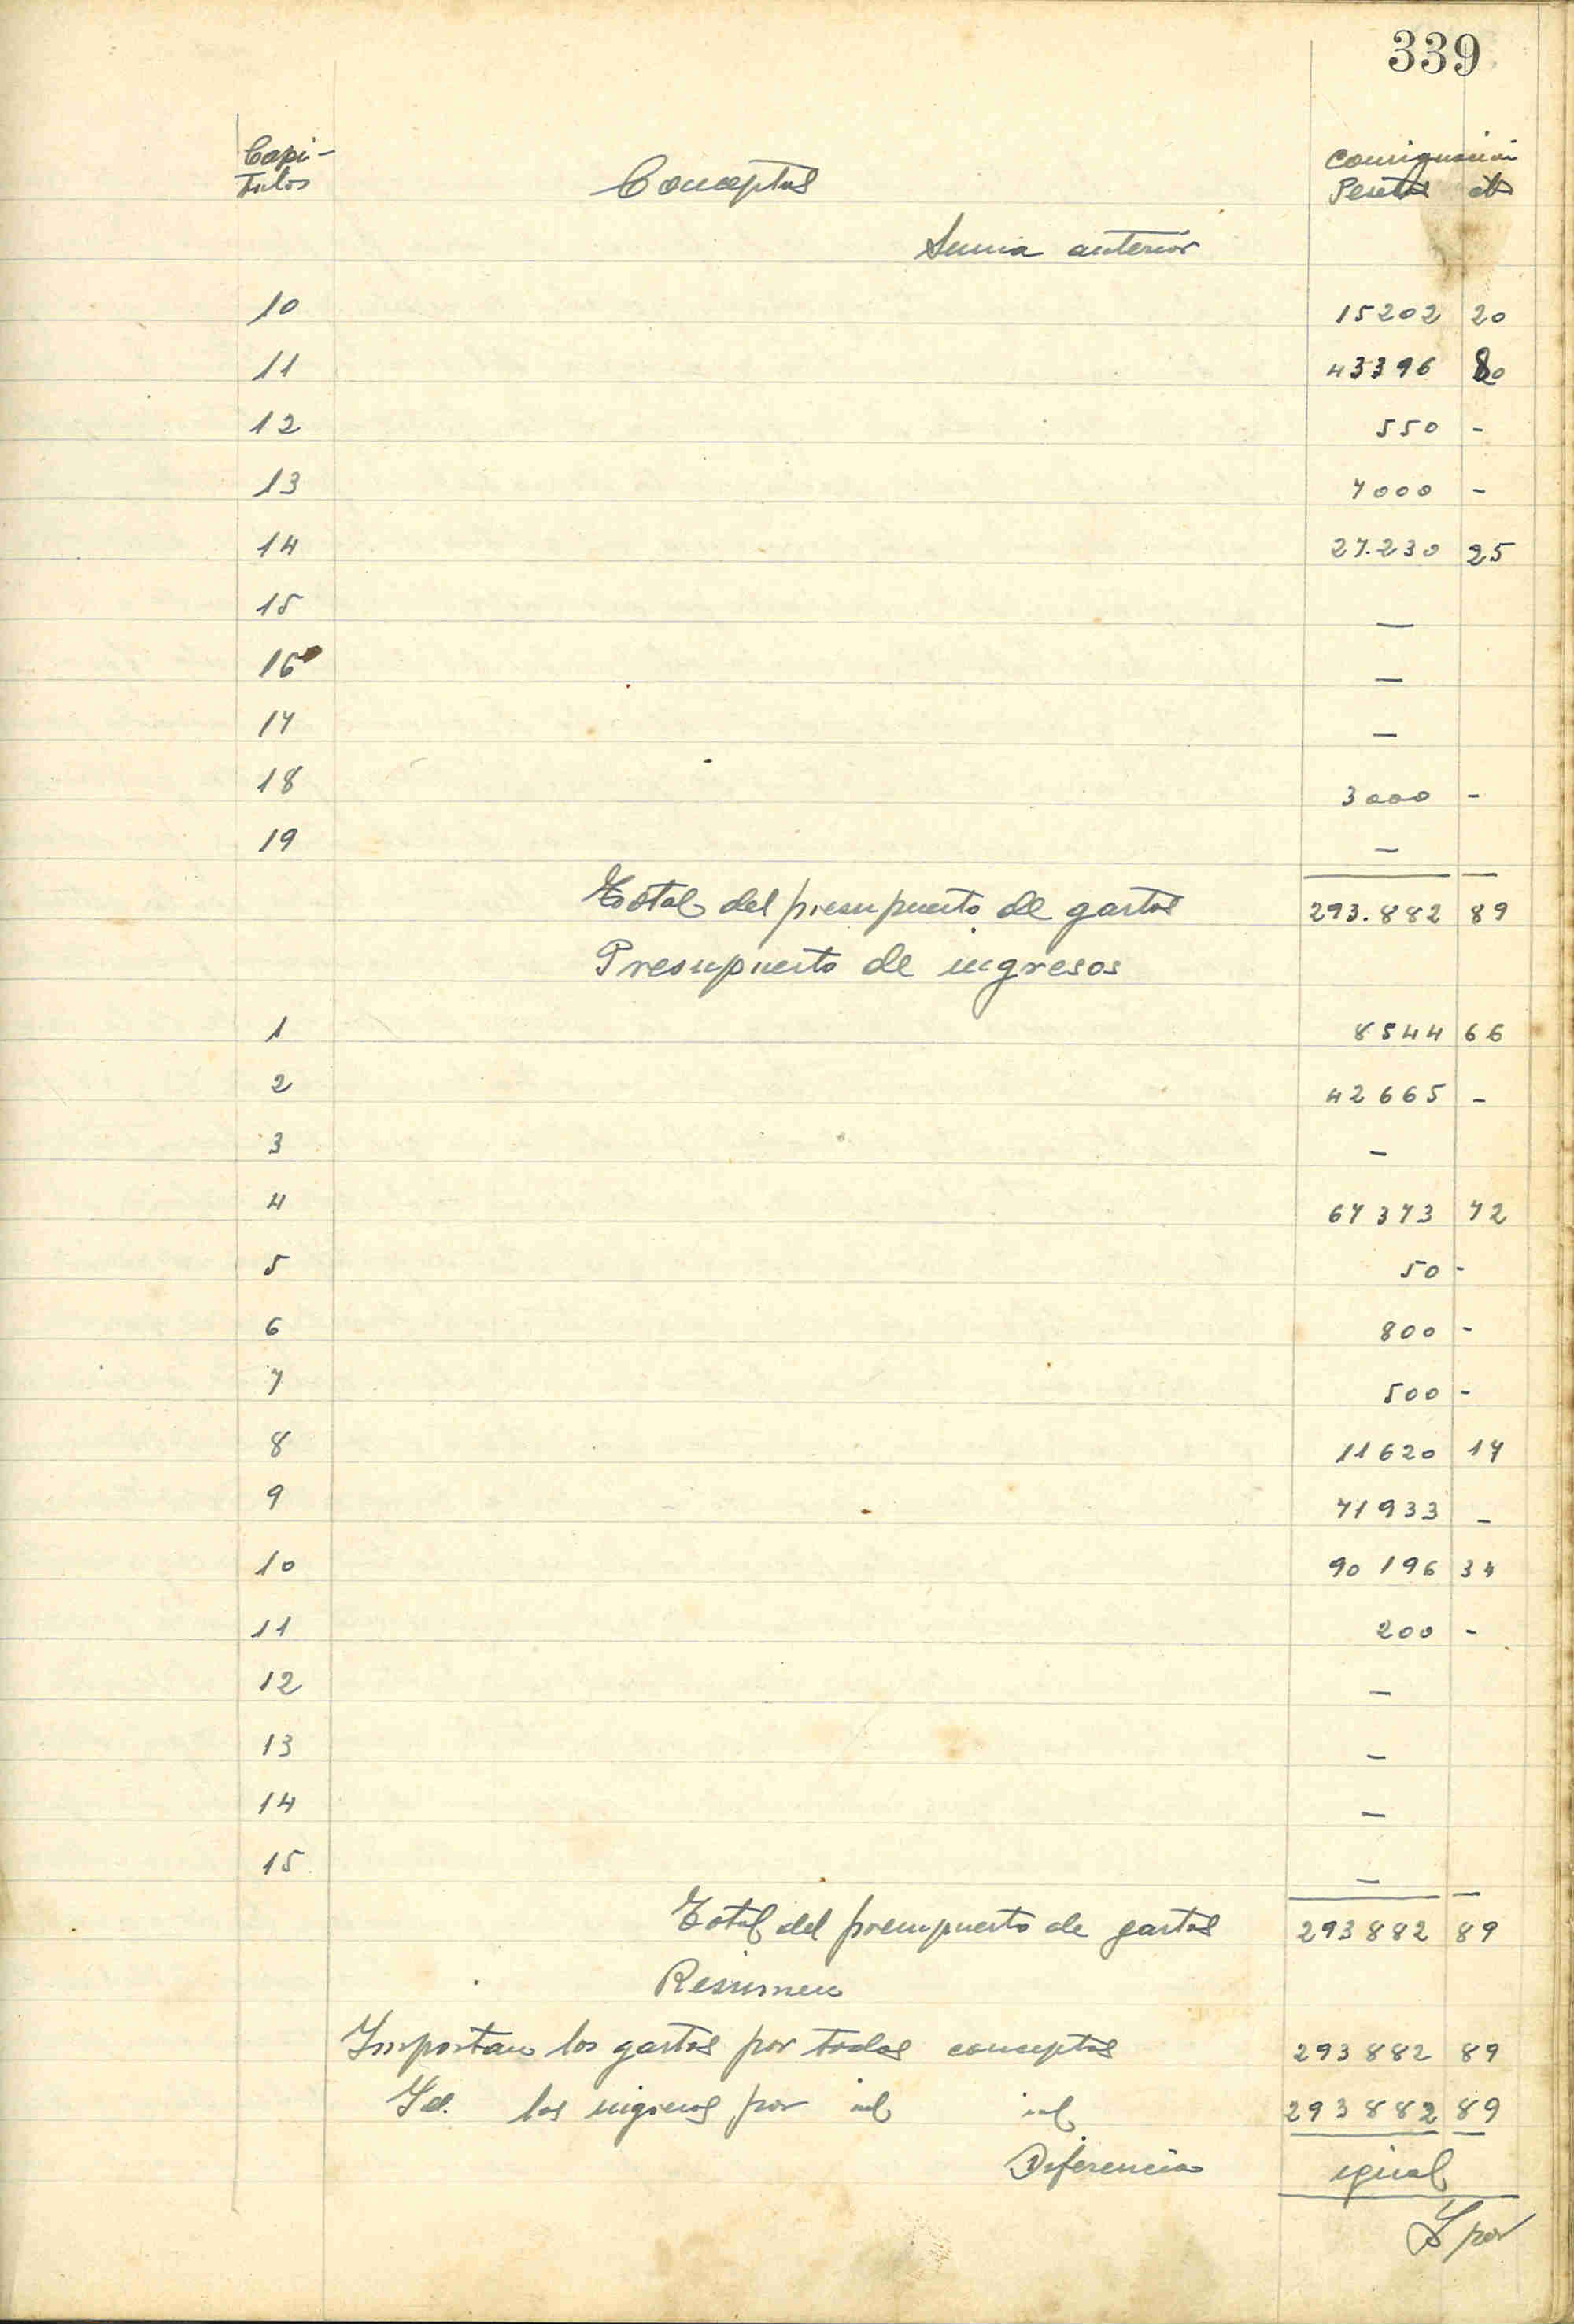 339
Capi- Conceptos Consignacion
tulos Pesetas cts
Suma anterior
10 15202 20
11 43396 80
12 550 -
13 7000 -
14 27.230 25
15 —
16 —
17 —
18 3000 -
19 —
Total del presupuesto de gastos 293.882 89
Presupuesto de ingresos
1 8544 66
2 42665 -
3 -
4 67373 72
5 50 -
6 800 -
7 500 -
8 11620 17
9 71933 -
10 90196 34
11 200 -
12 —
13 —
14 —
15 —
Total del presupuesto de gastos 293882 89
Resumen
Importan los gastos por todos conceptos 293882 89
Id. los ingresos por id id 293882 89
Diferencia igual
Y por